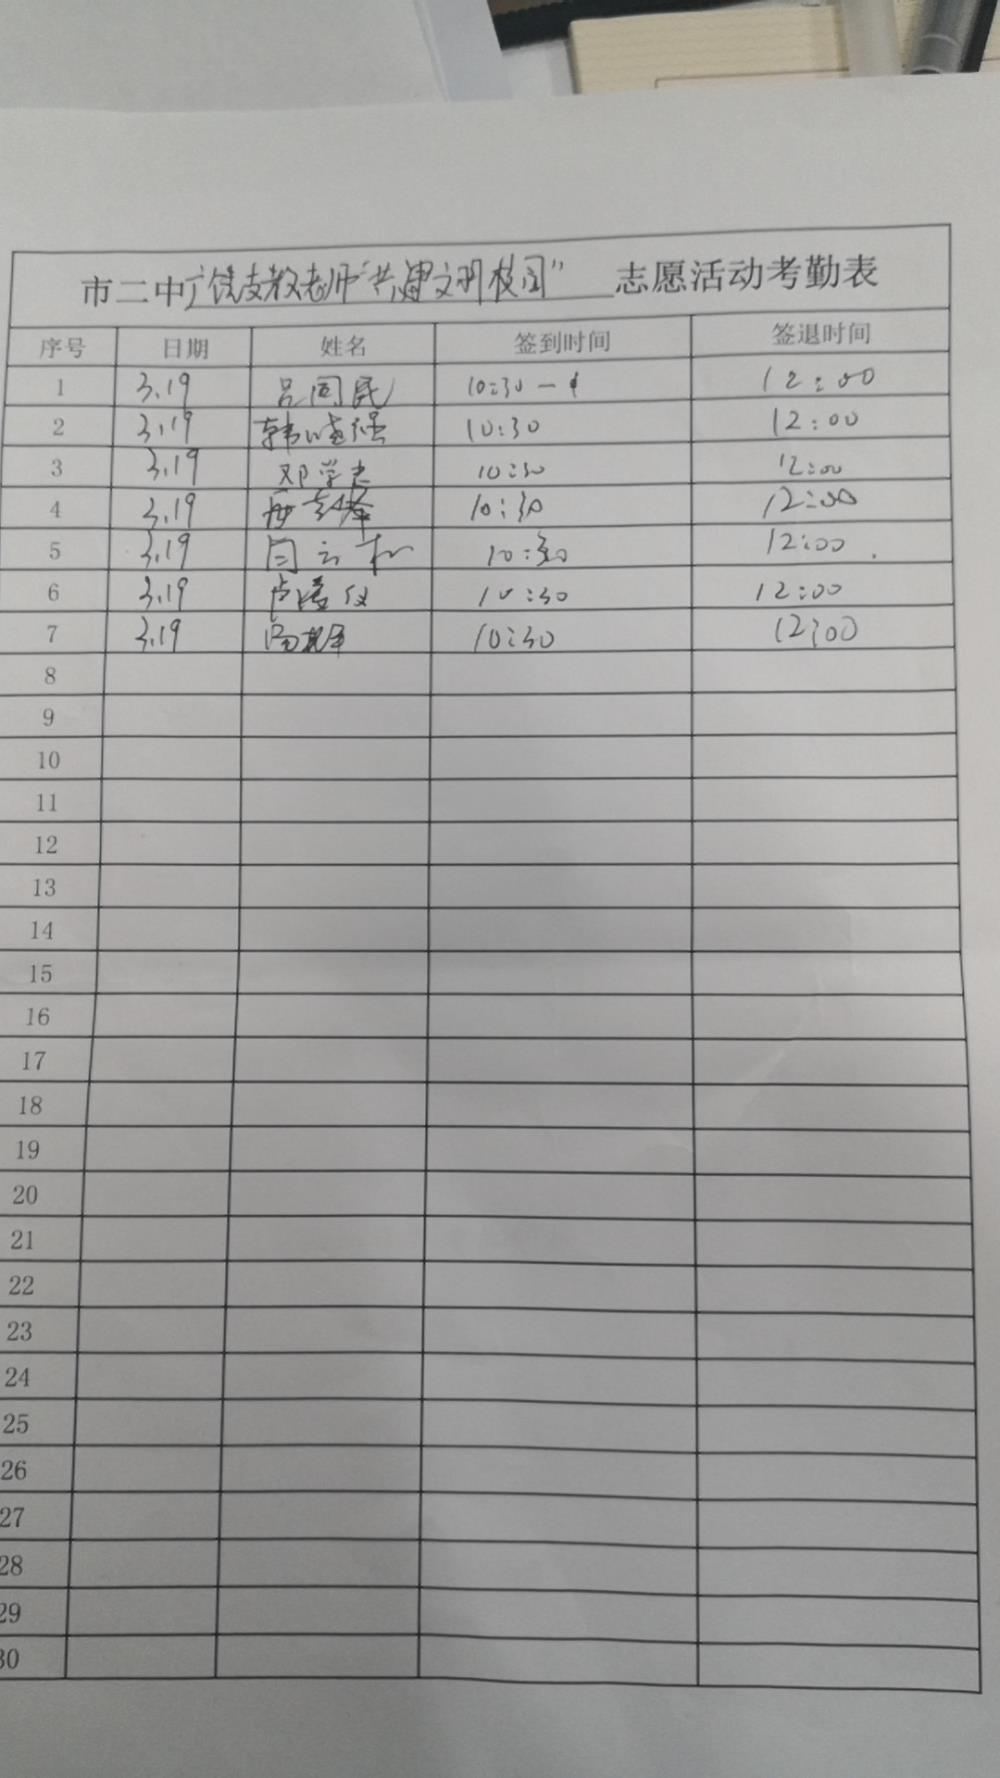 市二中广饶支教老师"共建文明校园"志愿活动考勤表
序号 日期 姓名 签到时间 签退时间
1 3.19 吕同民 10:30 12:00
2 3.19 韩 强 10:30 12:00
3 3.19 邓学志 10:30 12:00
4 3.19 10:30 12:00
5 3.19 闫云 10:30 12:00
6 3.19 卢 仪 10:30 12:00
7 3.19 10:30 12:00
8
9
10
11
12
13
14
15
16
17
18
19
20
21
22
23
24
25
26
27
28
29
30